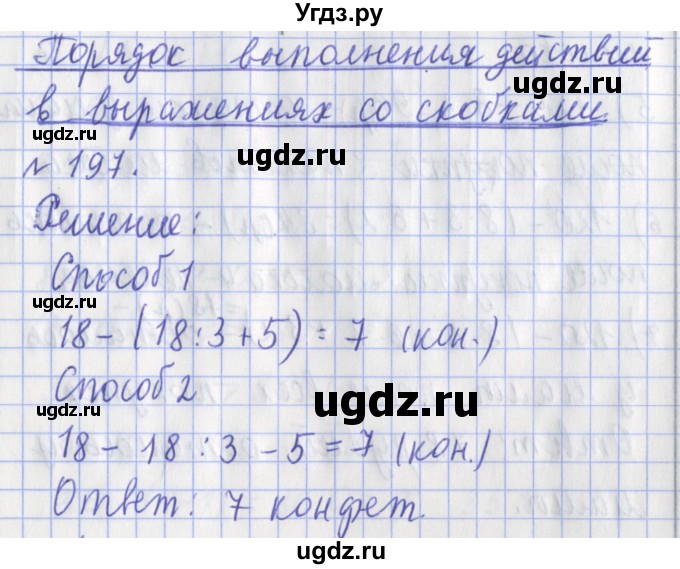 Угдз.ру
Порядок выполнения действий
ugdz.ru
в выражениях со скобками.
ugdz.ru
ugdz.ru
№ 197.
Решение:
ugdz.ru
Способ 1
ugdz.ru
18 – (18 : 3 + 5) = 7 (кон.)
Способ 2
ugdz.ru
ugdz.ru
18 – 18 : 3 – 5 = 7 (кон.)
ugdz.ru
Ответ: 7 конфет.
ugdz.ru
ugdz.ru